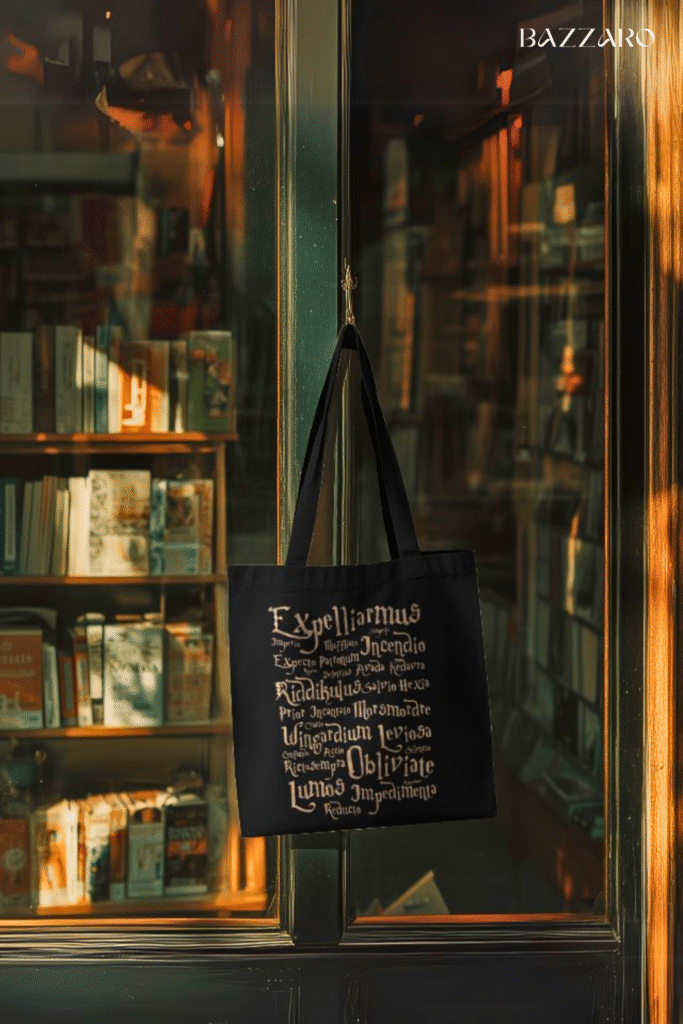 BAZZARO
Expelliarmus
Imperio Muffliato Incendio
Expecto Patronum Avada Kedavra
Riddikulus Salvio Hexia
Prior Incantato Morsmordre
Wingardium Leviosa
Accio Silencio
Rictusempra Obliviate
Lumos Impedimenta
Reducto